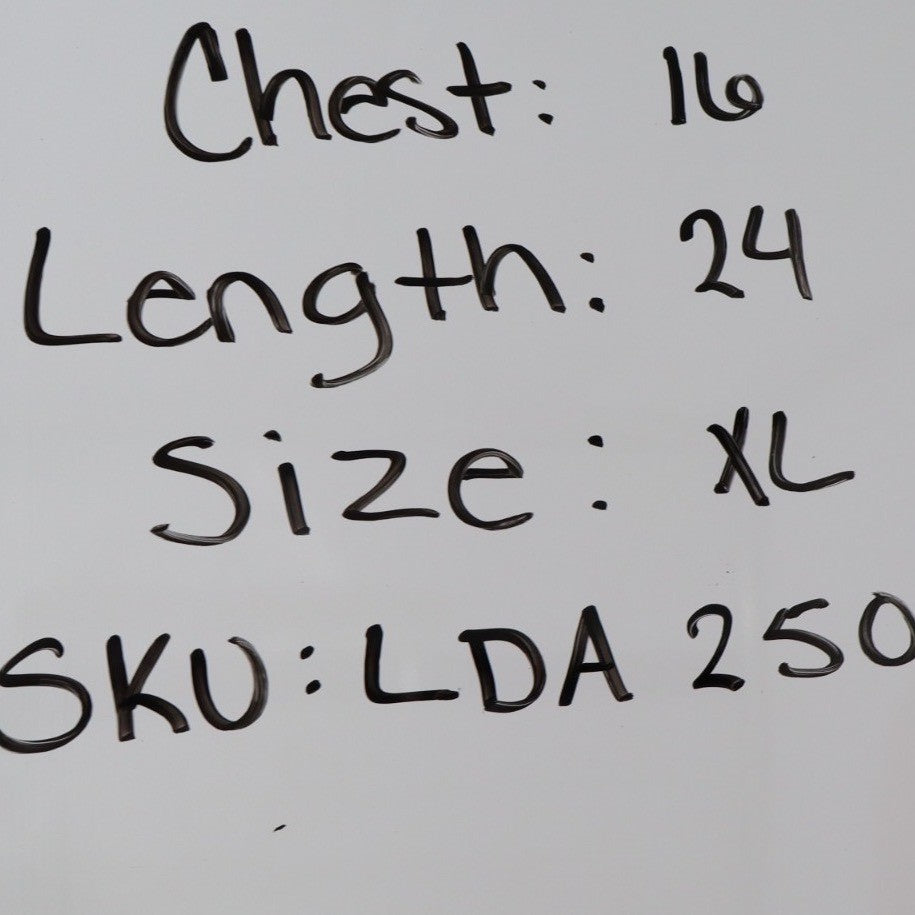 Chest: 16
Length: 24
Size: XL
SKU: LDA 250